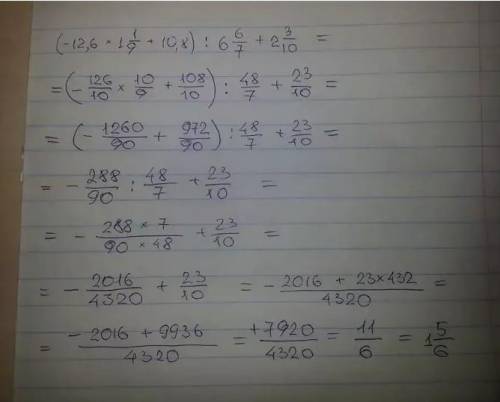 (-12,6 × 1 1/9 + 10,8) : 6 6/7 + 2 3/10 =
= (- 126/10 × 10/9 + 108/10) : 48/7 + 23/10 =
= (- 1260/90 + 972/90) : 48/7 + 23/10 =
= - 288/90 : 48/7 + 23/10 =
= - 288 × 7/90 × 48 + 23/10 =
= - 2016/4320 + 23/10 = - 2016 + 23×432/4320 =
= - 2016 + 9936/4320 = +7920/4320 = 11/6 = 1 5/6